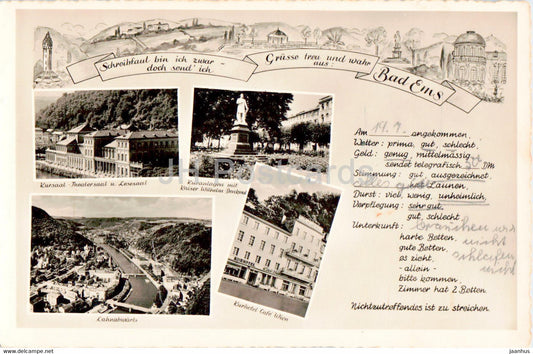 Schreibfaul bin ich zwar -
doch send' ich
Grüsse treu und wahr
aus:
Bad Ems
Kursaal-Theatersaal u. Lesesaal
Kuranlagen mit
Kaiser Wilhelm Denkmal
Lahnabwärts
Kurhotel Café Wien
Am 17. 9. angekommen,
Wetter: prima, gut, schlecht
Geld: genug, mittelmässig
sendet telegrafisch DM
Stimmung: gut, ausgezeichnet
hat Launen,
Durst: viel, wenig, unheimlich,
Verpflegung: sehr gut,
gut, schlecht
Unterkunft: brauchen wir
harte Betten, nicht
gute Betten, schlafen
es zieht, nicht
-allein-
bitte kommen,
Zimmer hat 2 Betten.
Nichtzutreffendes ist zu streichen.
https://www.hippostcard.com/store/jhpostcard
jaanhus